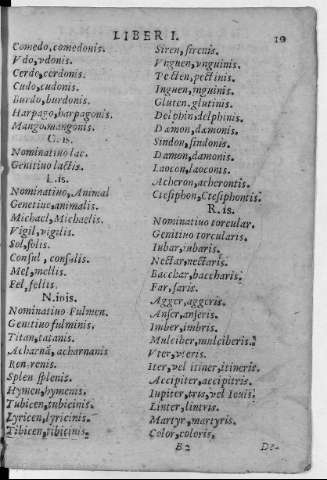 LIBER I. 10
Comedo, comedonis.
Vdo, vdonis.
Cerdo, cerdonis.
Cudo, cudonis.
Burdo, burdonis.
Harpago, harpagonis.
Mango, mangonis.
C. is.
Nominatiuo lac.
Genitiuo lactis.
L. is.
Nominatiuo, Animal
Genetiuo, animalis.
Michael, Michaelis.
Vigil, vigilis.
Sol, solis.
Consul, consulis.
Mel, mellis.
Fel, fellis.
N. inis.
Nominatiuo Fulmen.
Genitiuo fulminis.
Titan, titanis.
Acharnã, acharnanis
Ren renis.
Splen splenis.
Hymen, hymenis.
Tubicen, tubicinis.
Lyricen, lyricinis.
Tibicen, tibicinis.
Siren, sirenis.
Vnguen, vnguinis.
Pecten, pectinis.
Inguen, inguinis.
Gluten, glutinis.
Delphin, delphinis.
Dæmon, dæmonis.
Sindon, sindonis.
Damon, damonis.
Laocon, laoconis.
Acheron, acherontis.
Ctesiphon, Ctesiphontis.
R. is.
Nominatiuo torcular.
Genitiuo torcularis.
Iubar, iubaris.
Nectar, nectaris.
Bacchar, baccharis.
Far, faris.
Agger, aggeris.
Anser, anseris.
Imber, imbris.
Mulciber, mulciberis.
Vter, vteris.
Iter, vel itiner, itineris.
Accipiter, accipitris.
Iupiter, tris, vel Iouis.
Linter, lintris.
Martyr, martyris.
Color, coloris.
B 2 De-